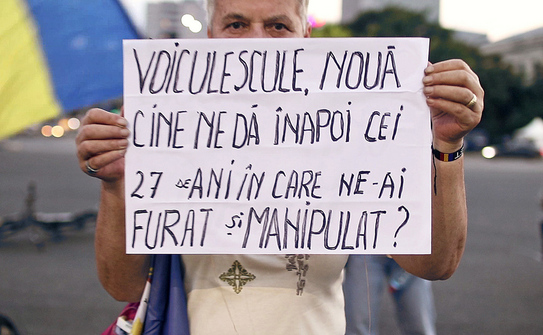 VOICULESCULE, NOUĂ
CINE NE DĂ ÎNAPOI CEI
27 DE ANI ÎN CARE NE-AI
FURAT ȘI MANIPULAT?